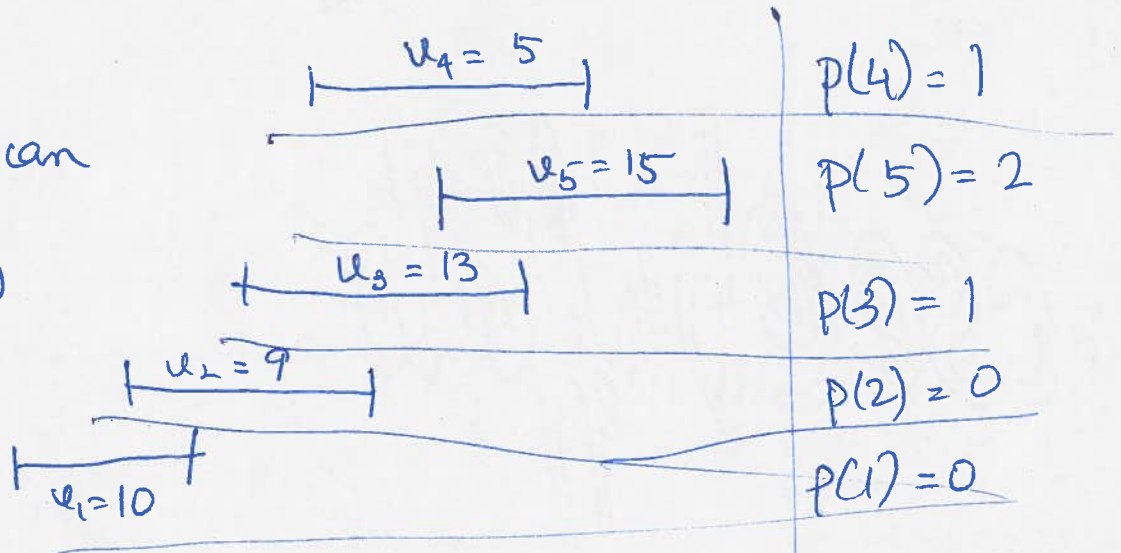 v₄ = 5 p(4) = 1
can
v₅ = 15 p(5) = 2
)
v₃ = 13 p(3) = 1
v₂ = 9 p(2) = 0
v₁ = 10 p(1) = 0